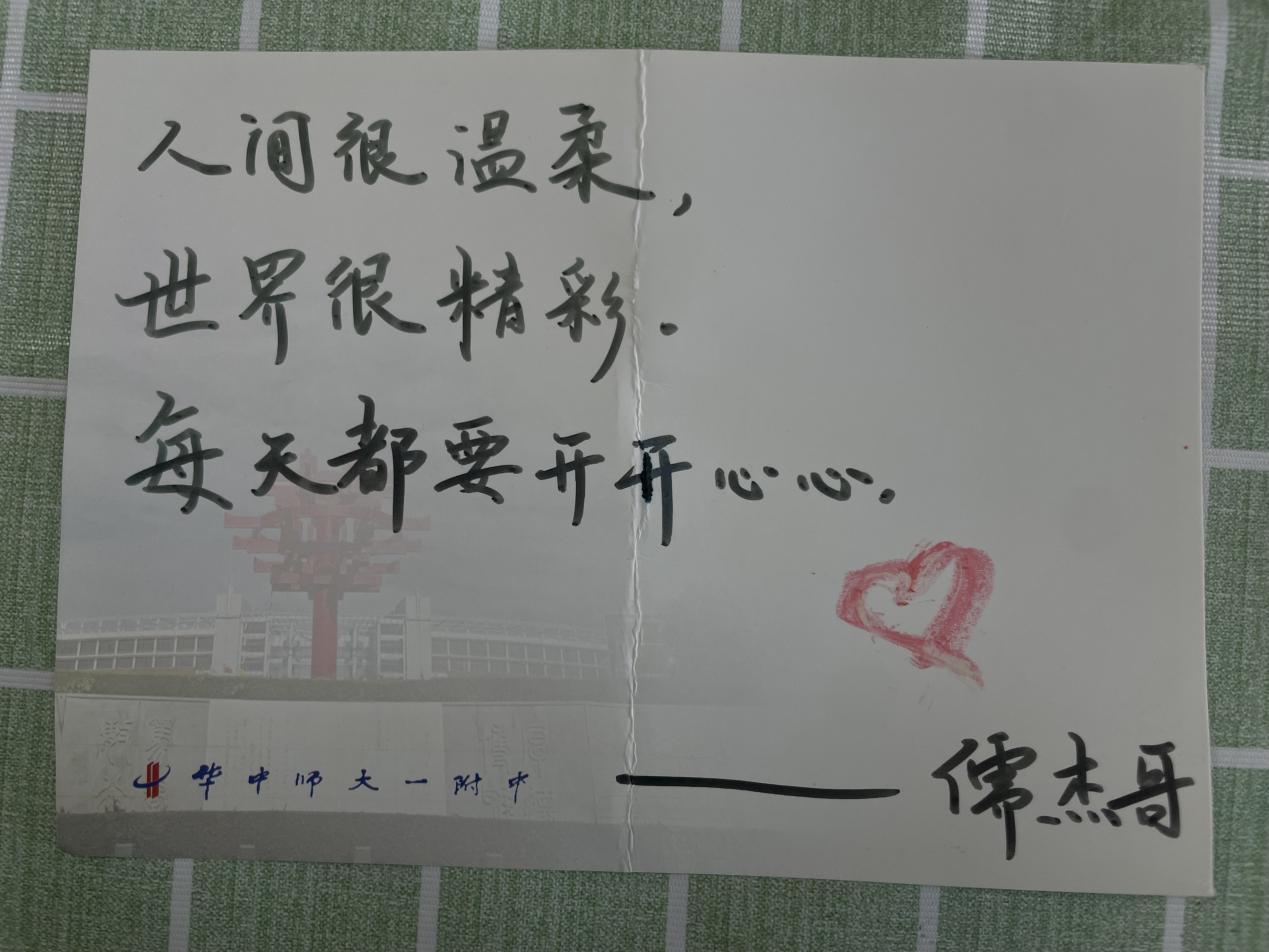 人间很温柔,
世界很精彩.
每天都要开开心心.
华中师大一附中
——儒杰哥